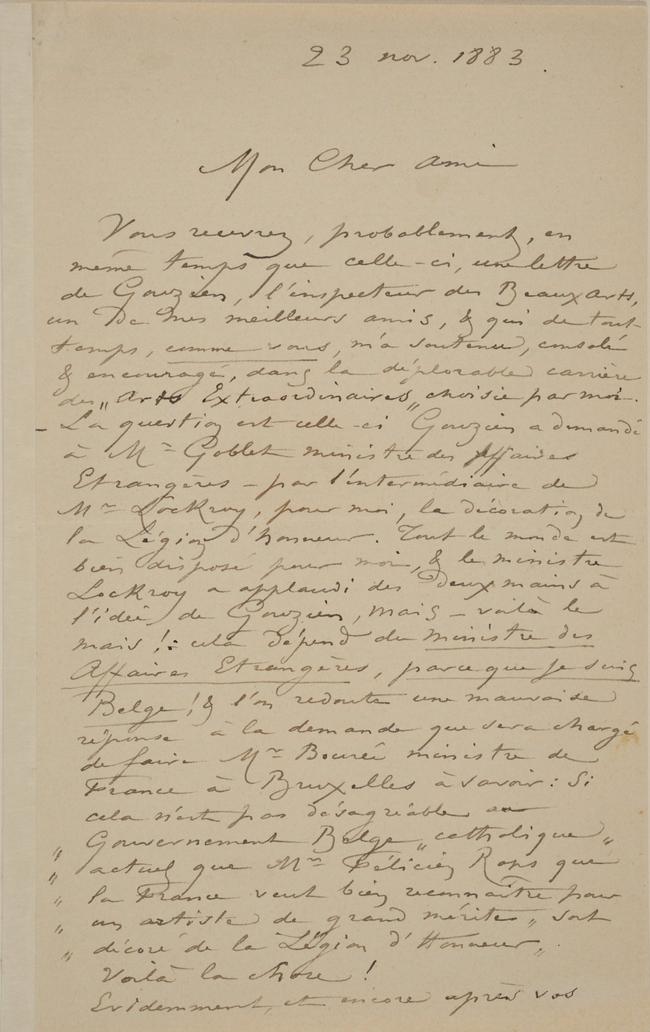 23 nov. 1883.
Mon Cher Ami
Vous recevrez, probablement, en
même temps que celle-ci, une lettre
de Gouzien, l'inspecteur des Beaux Arts,
un de mes meilleurs amis, & qui de tout
temps, comme vous, m'a soutenu, consolé
& encouragé, dans la déplorable carrière
des „Arts Extraordinaires„ choisie par moi.
– La question est celle-ci Gouzien a demandé
à Mr Goblet ministre des Affaires
Etrangères – par l'intermédiaire de
Mr Lockroy, pour moi, la décoration de
la Légion d'honneur. Tout le monde est
bien disposé pour moi, & le ministre
Lockroy a applaudi des deux mains à
l'idée de Gouzien, mais – voilà le
mais !: cela dépend du ministre des
Affaires Etrangères, parce que je suis
Belge ! & l'on redoute une mauvaise
réponse à la demande que sera chargé
de faire Mr Bourée ministre de
France à Bruxelles à savoir : Si
cela n'est pas désagréable au
„ Gouvernement Belge „catholique„
„ actuel que Mr Félicien Rops que
„ la France veut bien reconnaître pour
„ un artiste de grand mérite„ soit
„ décoré de la Légion d'Honneur„.
Voilà la chose !
Evidemment, et encore après vos